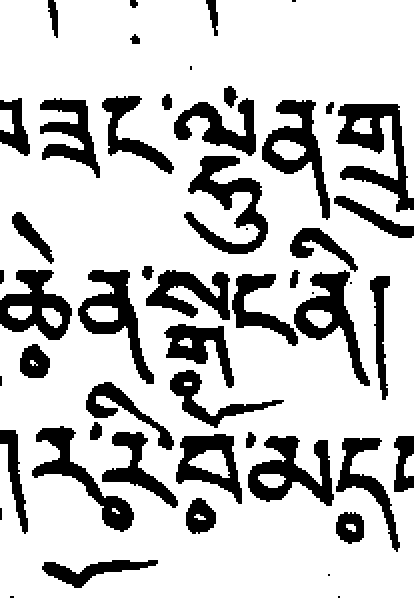 བཟང་ལྷུན་གྲུ
ཆེན་སྒང་ནི།
།ར་རི་བོ་མད